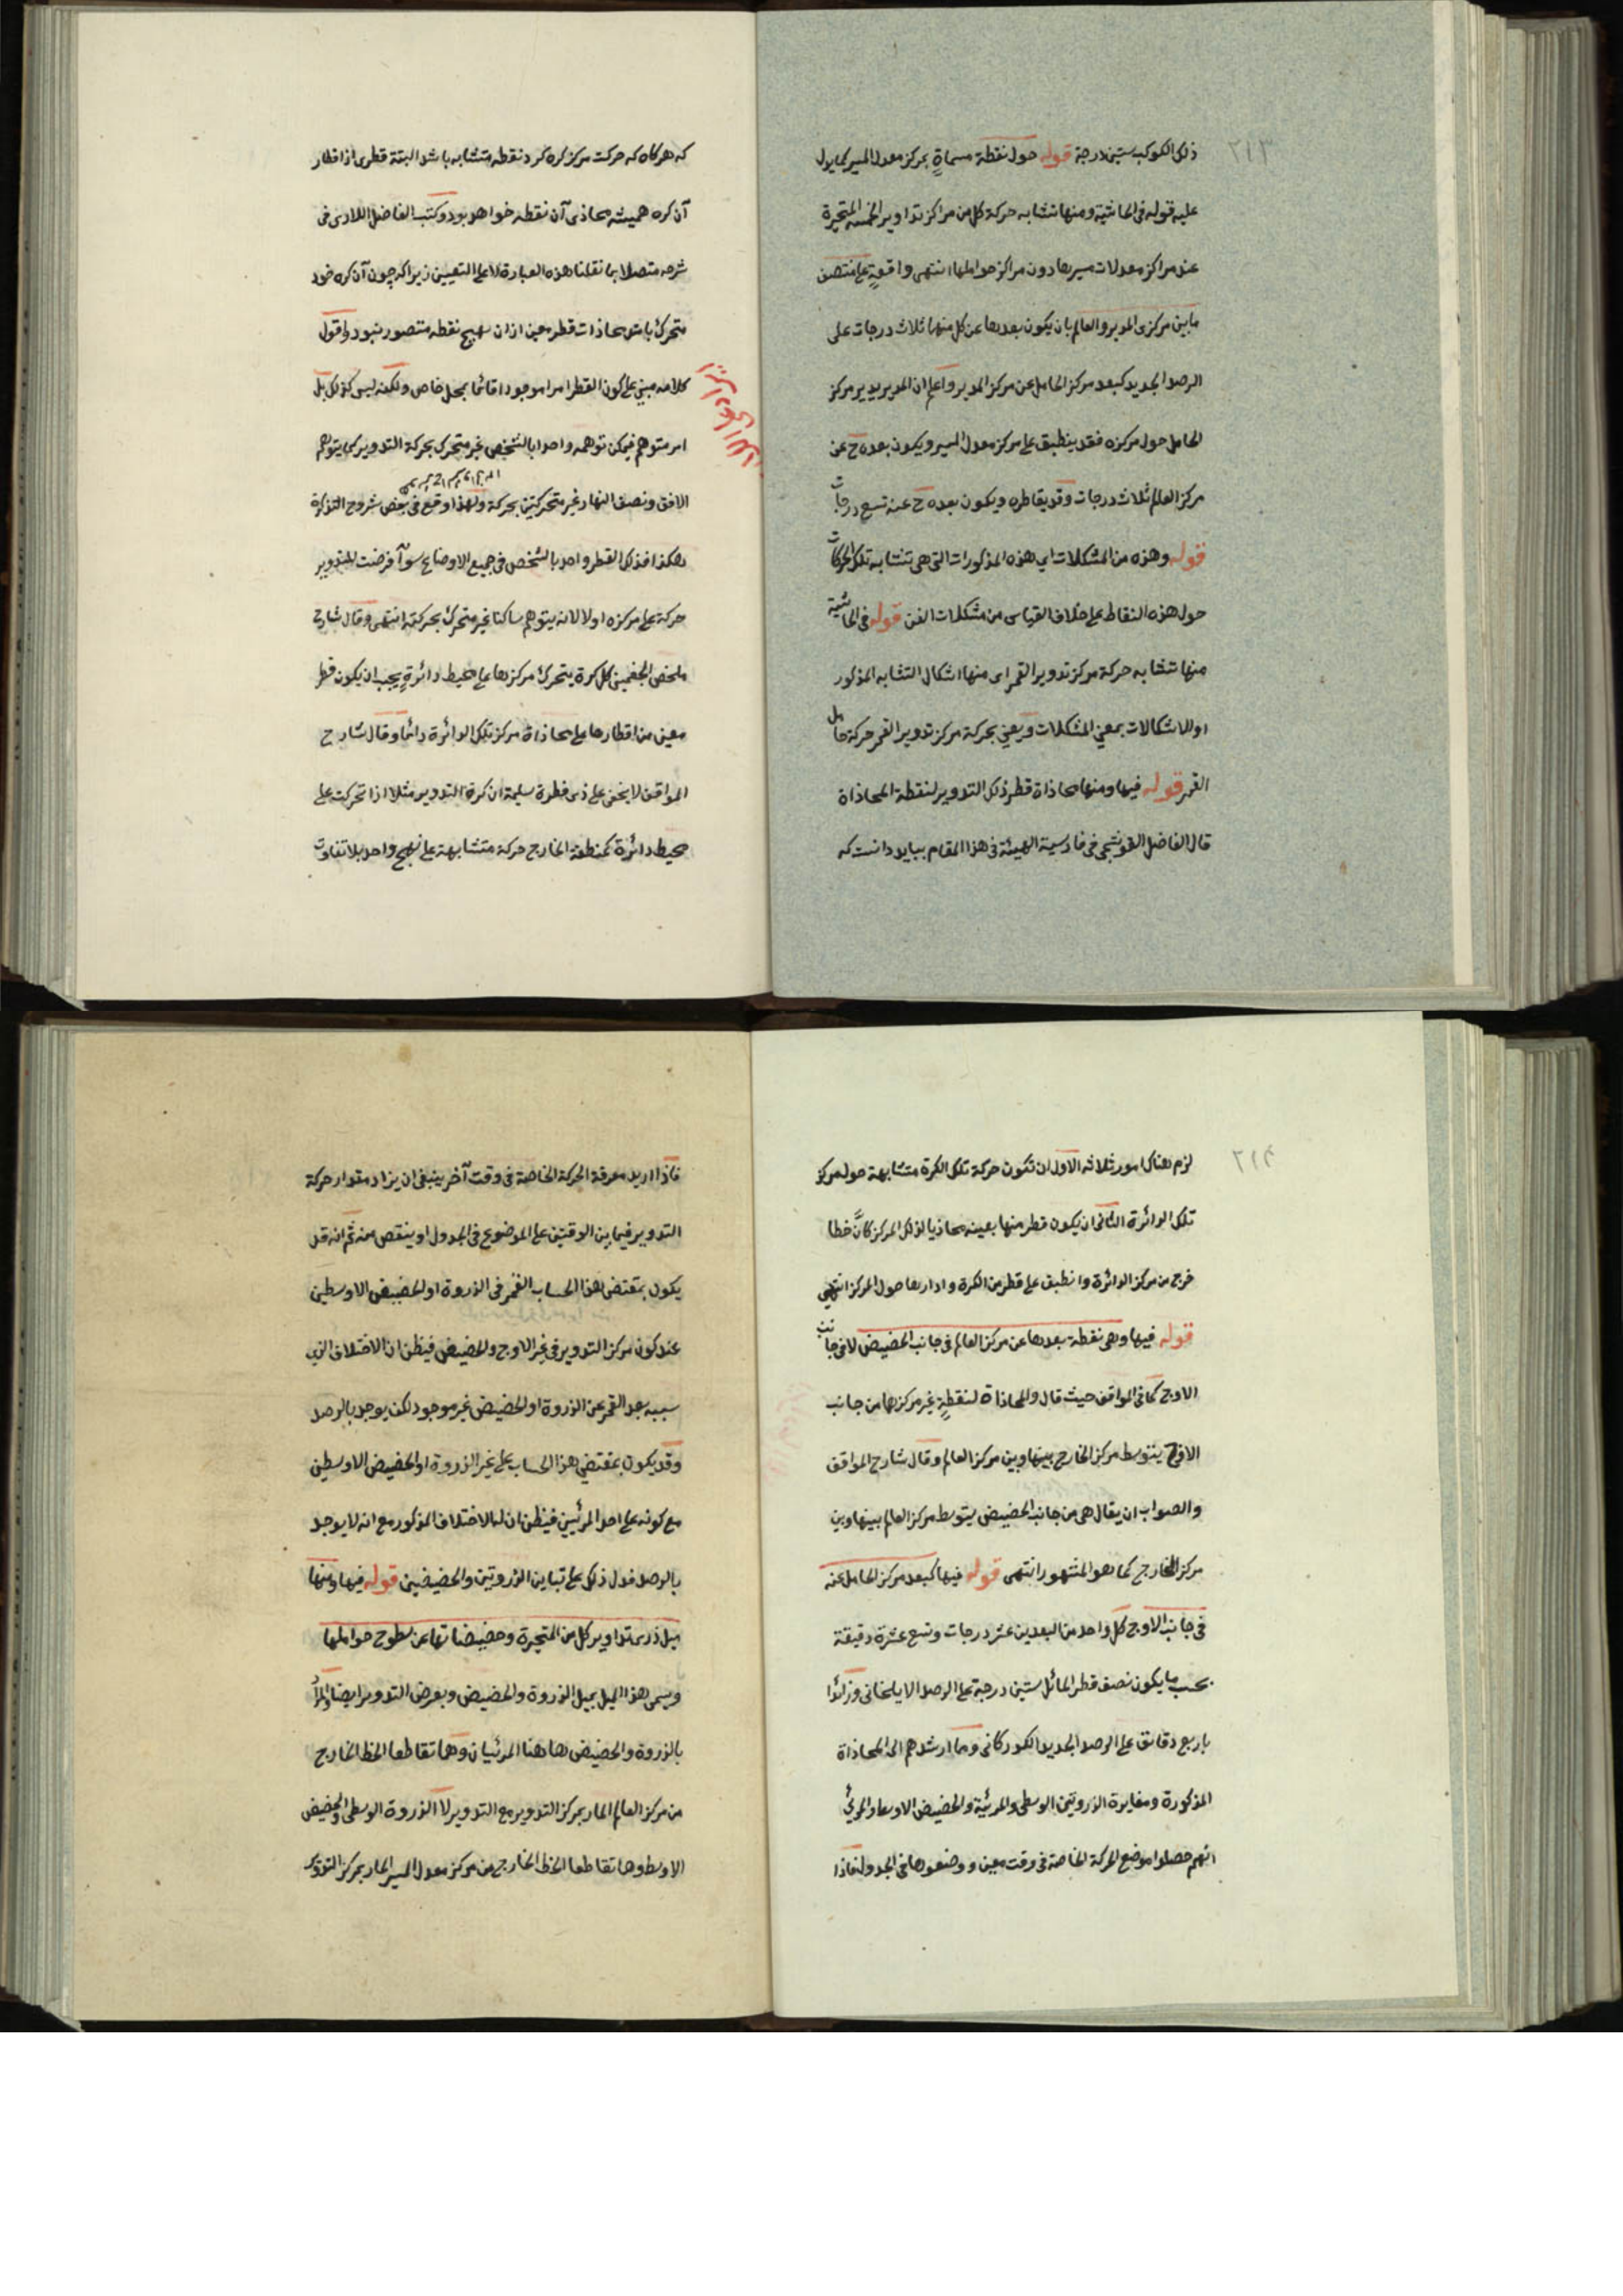 ٢١٣
ذلك الكوكب ستين درجة قوله حول نقطة مسماةٍ بمركز معدل المسير كما يدل
عليه قوله في الحاشية ومنها تشابه حركة كل من مراكز تداوير الخمسة المتحيرة
عند مراكز معدلات مسيرها دون مراكز حواملها انتهى واقعةٍ على منتصف
ما بين مركزى المدير والعالم بان يكون بعدها عن كل منهما ثلاث درجات على
الرصد الجديد كبعد مركز الحامل عن مركز المدير واعلم ان المدير يدير مركز
الحامل حول مركزه فقد ينطبق على مركز معدل المسير ويكون بعده ح عن
مركز العالم ثلاث درجات وقد يقاطره ويكون بعده ح عنه تسع درجات
قوله وهذه من المشكلات اي هذه المذكورات التى هى تشابه تلك الحركات
حول هذه النقاط على خلاف القياس من مشكلات الفن قوله في الحاشية
منها تشابه حركة مركز تدوير القمر اى منها اشكال التشابه المذكور
او الاشكالات بمعنى المشكلات ويعني بحركة مركز تدوير القمر حركة حامل
القمر قوله فيها ومنها محاذاة قطر ذلك التدوير لنقطة المحاذاة
قال الفاضل القوشجى في فارسية الهيئة في هذا المقام ببايد دانست كه
كه هركاه كه حركت مركز كره كرد نقطه متشابه باشد البتة قطرى از اقطار
آن كره هميشه محاذى آن نقطه خواهد بود وكتب الفاضل اللارى في
شرحه متصلا بما نقلنا هذه العبارة لا على التعيين زيرا كه چون آن كره خود
متحرك باشد محاذات قطر معين از ان بهيچ نقطه متصور نبود واقول
كلامه مبني على كون القطر امرا موجودا قائما بمحل خاص ولكنه ليس كذلك بل
امر متوهم فيمكن توهمه واحدا بالشخص غير متحرك بحركة التدوير كما يتوهم
الافق ونصف النهار غير متحركتين بحركة ولهذا وقع في بعض شروح التذكرة
هكذا فذلك القطر واحد بالشخص في جميع الاوضاع سوآ فرضت للتدوير
حركة على مركزه اولا لانه يتوهم ساكنا غير متحرك بحركته انتهى وقال شارح
ملخص الجغمينى كل كرة يتحرك مركزها على محيط دائرةٍ يجب ان يكون قطر
معين من اقطارها على محاذاة مركز تلك الدائرة دائما وقال شارح
المواقف لا يخفى على ذى فطرة سليمة ان كرة التدوير مثلا اذا تحركت على
محيط دائرة كمنطقة الخارج حركة متشابهة على نهج واحد بلا تفاوت
٢١٤
لزم هناك امور ثلاثه الاول ان تكون حركة تلك الكرة متشابهة حول مركز
تلك الدائرة الثانى ان يكون قطر منها بعينه محاذيا لذلك المركز كانّ خطا
خرج من مركز الدائرة وانطبق على قطر من الكرة وادارها حول المركز انتهى
قوله فيها وهى نقطة بعدها عن مركز العالم في جانب الحضيض لا في جانب
الاوج كما في المواقف حيث قال والمحاذاة لنقطةٍ غير مركزها من جانب
الاوج يتوسط مركز الخارج بينها وبين مركز العالم وقال شارح المواقف
والصواب ان يقال هى من جانب الحضيض يتوسط مركز العالم بينها وبين
مركز الخارج كما هو المشهور انتهى قوله فيها كبعد مركز الحامل عنه
في جانب الاوج كل واحد من البعدين عشر درجات وتسع عشرة دقيقة
بحسب ما يكون نصف قطر المائل ستين درجة على الرصد الايلخانى وزائدا
باربع دقائق على الرصد الجديد الكوركانى ومما ارشدهم الى المحاذاة
المذكورة ومغايرة الذروتين الوسطى والمرئية والحضيض الاوسط والمرئي
انهم حصلوا موضع الحركة الخاصة في وقت معين ووضعوها في الجدول فاذا
فاذا اريد معرفة الحركة الخاصة في وقت آخر ينبغى ان يزاد مقدار حركة
التدوير فيما بين الوقتين على الموضوع في الجدول او ينقص منه ثم انه قد
يكون بمقتضى هذا الحساب القمر في الذروة او الحضيض الاوسطين
عند كون مركز التدوير في غير الاوج والحضيض فيظن ان الاختلاف الذى
سببه بعد القمر عن الذروة او الحضيض غير موجود لكن يوجد بالرصد
وقد يكون بمقتضي هذا الحساب على غير الذروة او الحضيض الاوسطين
مع كونه على احد المرئيين فيظن ان له الاختلاف المذكور مع انه لا يوجد
بالرصد فدل ذلك على تباين الذروتين والحضيضين قوله فيها ومنها
ميل ذرى تداوير كل من المتحيرة وحضيضاتها عن سطوح حواملها
ويسمى هذا الميل بميل الذروة والحضيض وبعرض التدوير ايضا والمراد
بالذروة والحضيض ها هنا المرئيان وهما تقاطعا الخط الخارج
من مركز العالم المار بمركز التدوير مع التدوير لا الذروة الوسطى والحضيض
الاوسط وهما تقاطعا الخط الخارج من مركز معدل المسير المار بمركز التدوير